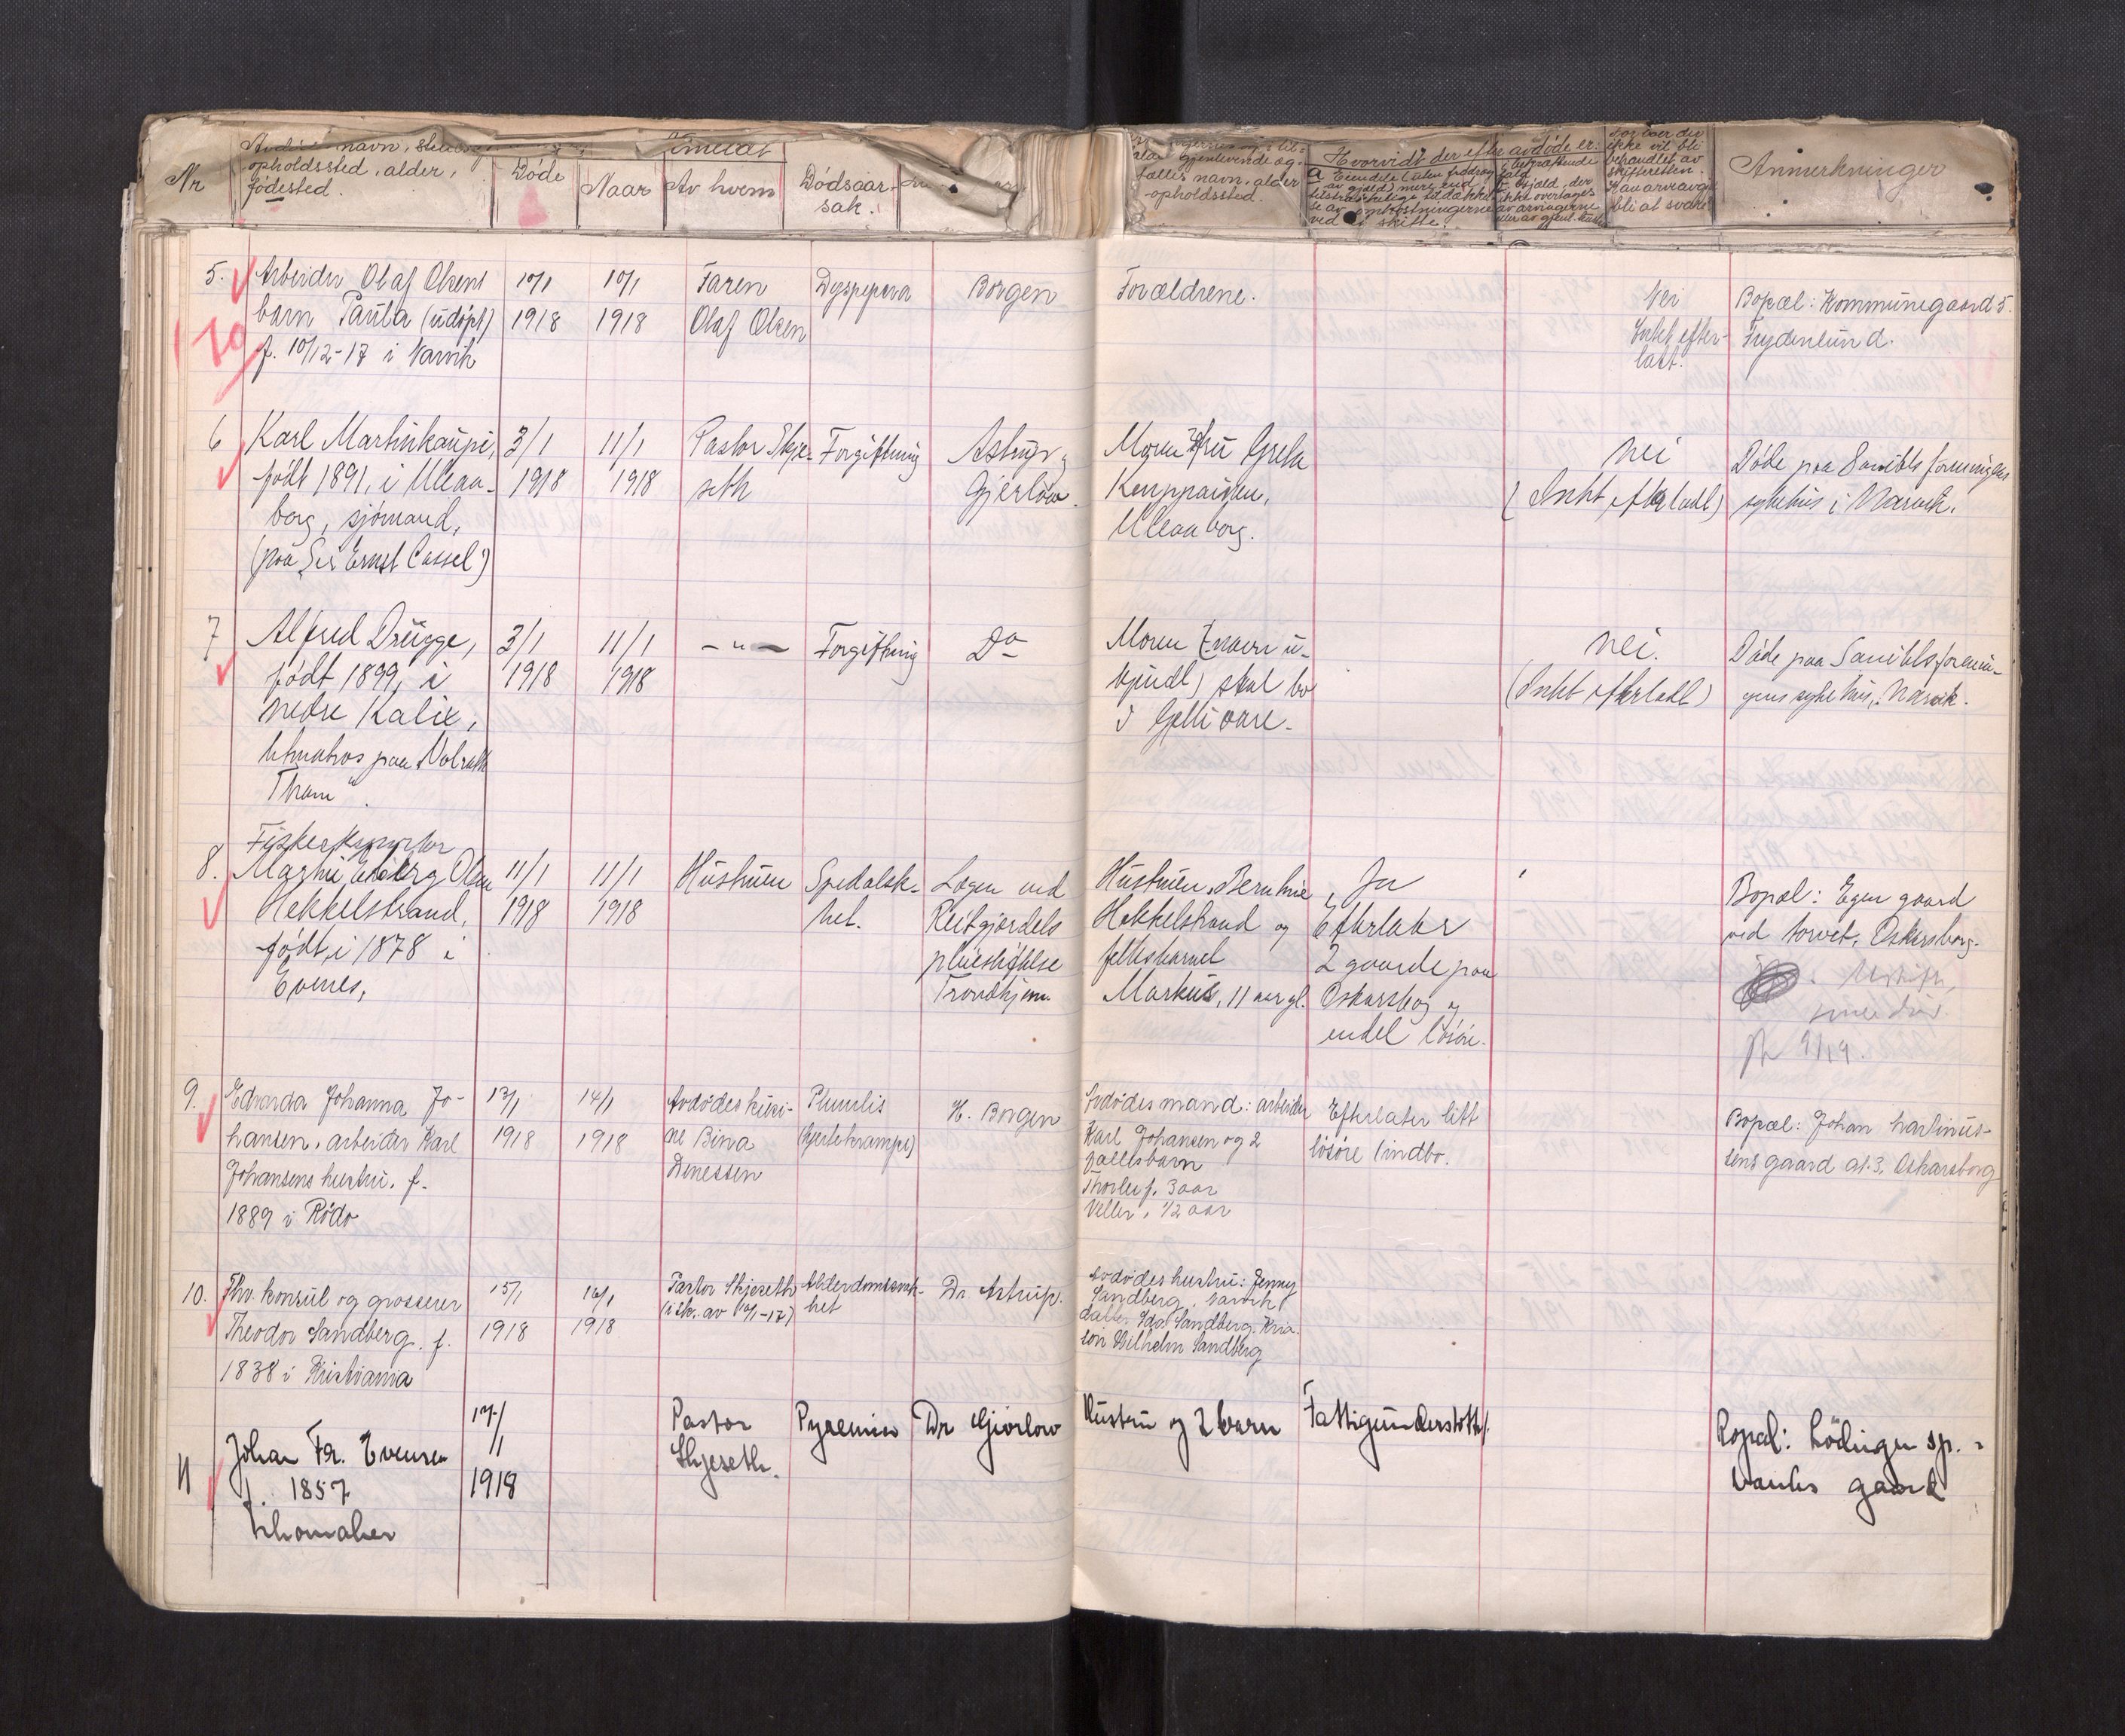 Nr
navn,
opholdssted, alder,
fødested.
Døde
Naar
Av hvem
Dødsaar-
sak.
gjenlevende æg-
tefælles navn, alder
opholdssted.
Hvorvidt der efter avdøde er:
ikke vil bli
behandlet av
skifteretten.
bli at svare
Anmerkninger
5.
Arbeider Olaf Olsens
barn Paula (udøpt)
f. 10/12-17 i Narvik
10/1
1918
10/1
1918
Faren
Olaf Olsen
Dyspepsia
Borgen
Forældrene.
Nei
Intet efter-
latt.
Bopæl: Kommunegaard 5.
Frydenlund.
6
Karl Martinkaupi,
født 1891, i Uleaa-
borg, sjømand,
(paa Sir Ernst Cassel")
3/1
1918
11/1
1918
Pastor Skje-
seth
Forgiftning
Astrup og
Gjerløw.
Moren Fru Greta
Uleaaborg.
nei
(Intet efterladt)
Døde paa Sanitetsforeningens
sykehus i Narvik.
7
Alfred Drugge,
født 1899, i
nedre Kalix,
letmatros paa "Volrath
Tham".
3/1
1918
11/1
1918
- " -
Forgiftning
Do
Moren (navn u-
kjendt) skal bo
i Gellivare.
nei.
(Intet efterladt)
Døde paa Sanitetsforenin-
gens sykehus, Narvik.
8.
Fiskeskipper
Martin Edberg Olsen
Hekkelstrand,
født i 1878 i
Evenes,
11/1
1918
11/1
1918
Hustruen
Spedalsk-
het.
Lægen ved
Reitgjerdets
pleiestiftelse
Trondhjem.
Hustruen Berntine
Hekkelstrand og
fellesbarnet
Markus, 11 aar gl.
Ja
Efterlater
2 gaarde paa
Oskarsborg og
endel løsøre.
Bopæl: Egen gaard
ved torvet, Oskarsborg.
9.
Edvarda Johanna Jo-
hansen, arbeider Karl
Johansens hustru. f.
1889 i Rødø
13/1
1918
14/1
1918
Avdødes kusi-
ne Bina
Denessen
(hjertekrampe)
H. Borgen
Avdødes mand: arbeider
Karl Johansen og 2
fællesbarn
Thorleif. 3 aar
1/2 aar
Efterlater litt
løsøre (indbo.
Bopæl: Johan Martinus-
sens gaard at. 3. Oskarsborg
10.
Fhv. konsul og grosserer
Theodor Sandberg. f.
1838 i Kristiania
15/1
1918
16/1
1918
Pastor Skjeseth
Alderdomssvak-
het
Dr. Astrup.
Avdødes hustru: Jenny
Sandberg, Narvik
datter Ida Sandberg, Kria.
søn Wilhelm Sandberg
11
Johan Fr. Evensen
f. 1857
skomaker
17/1
1918
Pastor
Skjeseth.
Pyaemia
Dr Gjørlow
Hustru og 2 barn
Fattigunderstøttet.
Bopæl: Lødingen sp. -
banks gaard